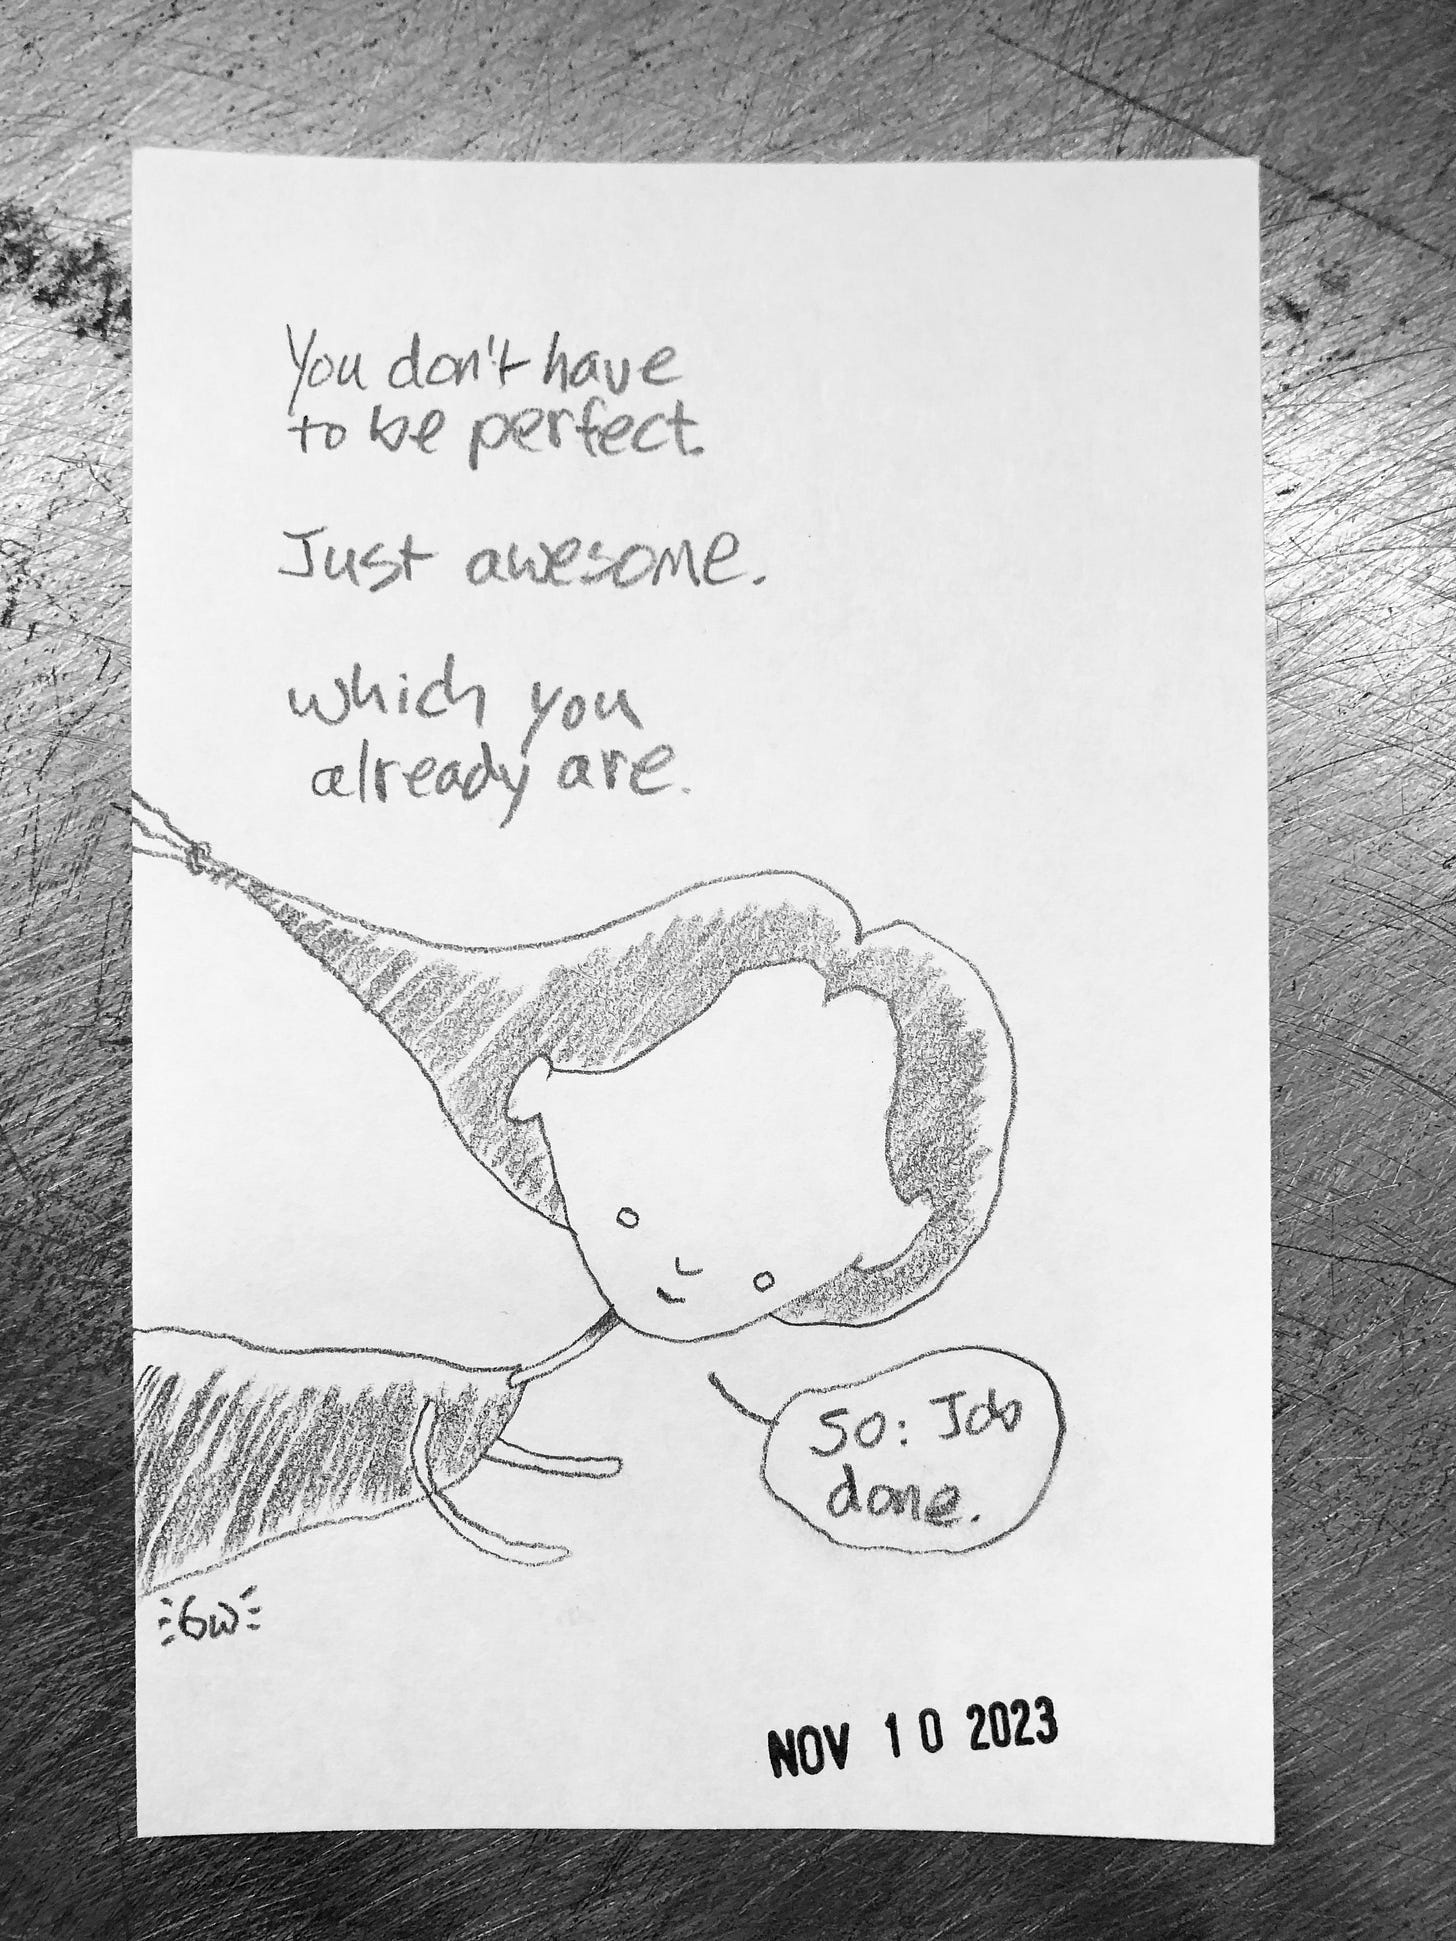 You don't have
to be perfect.
Just awesome.
which you
already are.
So: Job
done.
GW
NOV 10 2023